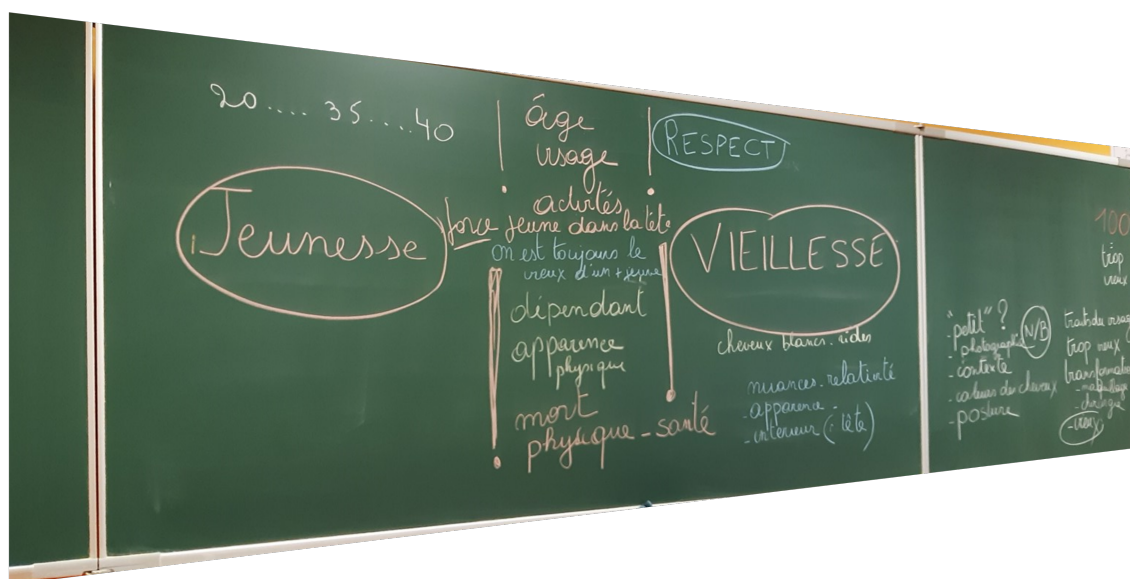 20.... 35....40
Jeunesse
force
âge
visage
activités
jeune dans la tête
on est toujours le
vieux d'un + jeune
dépendant
apparence
physique
mort
physique - santé
RESPECT
VIEILLESSE
cheveux blancs. rides
nuances. relativité
- apparence -
- intérieur (: tête)
"petit" ?
- photographie N/B
- contexte
- couleur des cheveux
- posture
100
trop
vieux
traits du visag
trop vieux
transformatio
- maquillage
- chirurgie
- vieux